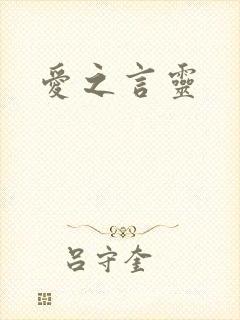 愛之言靈
呂守奎